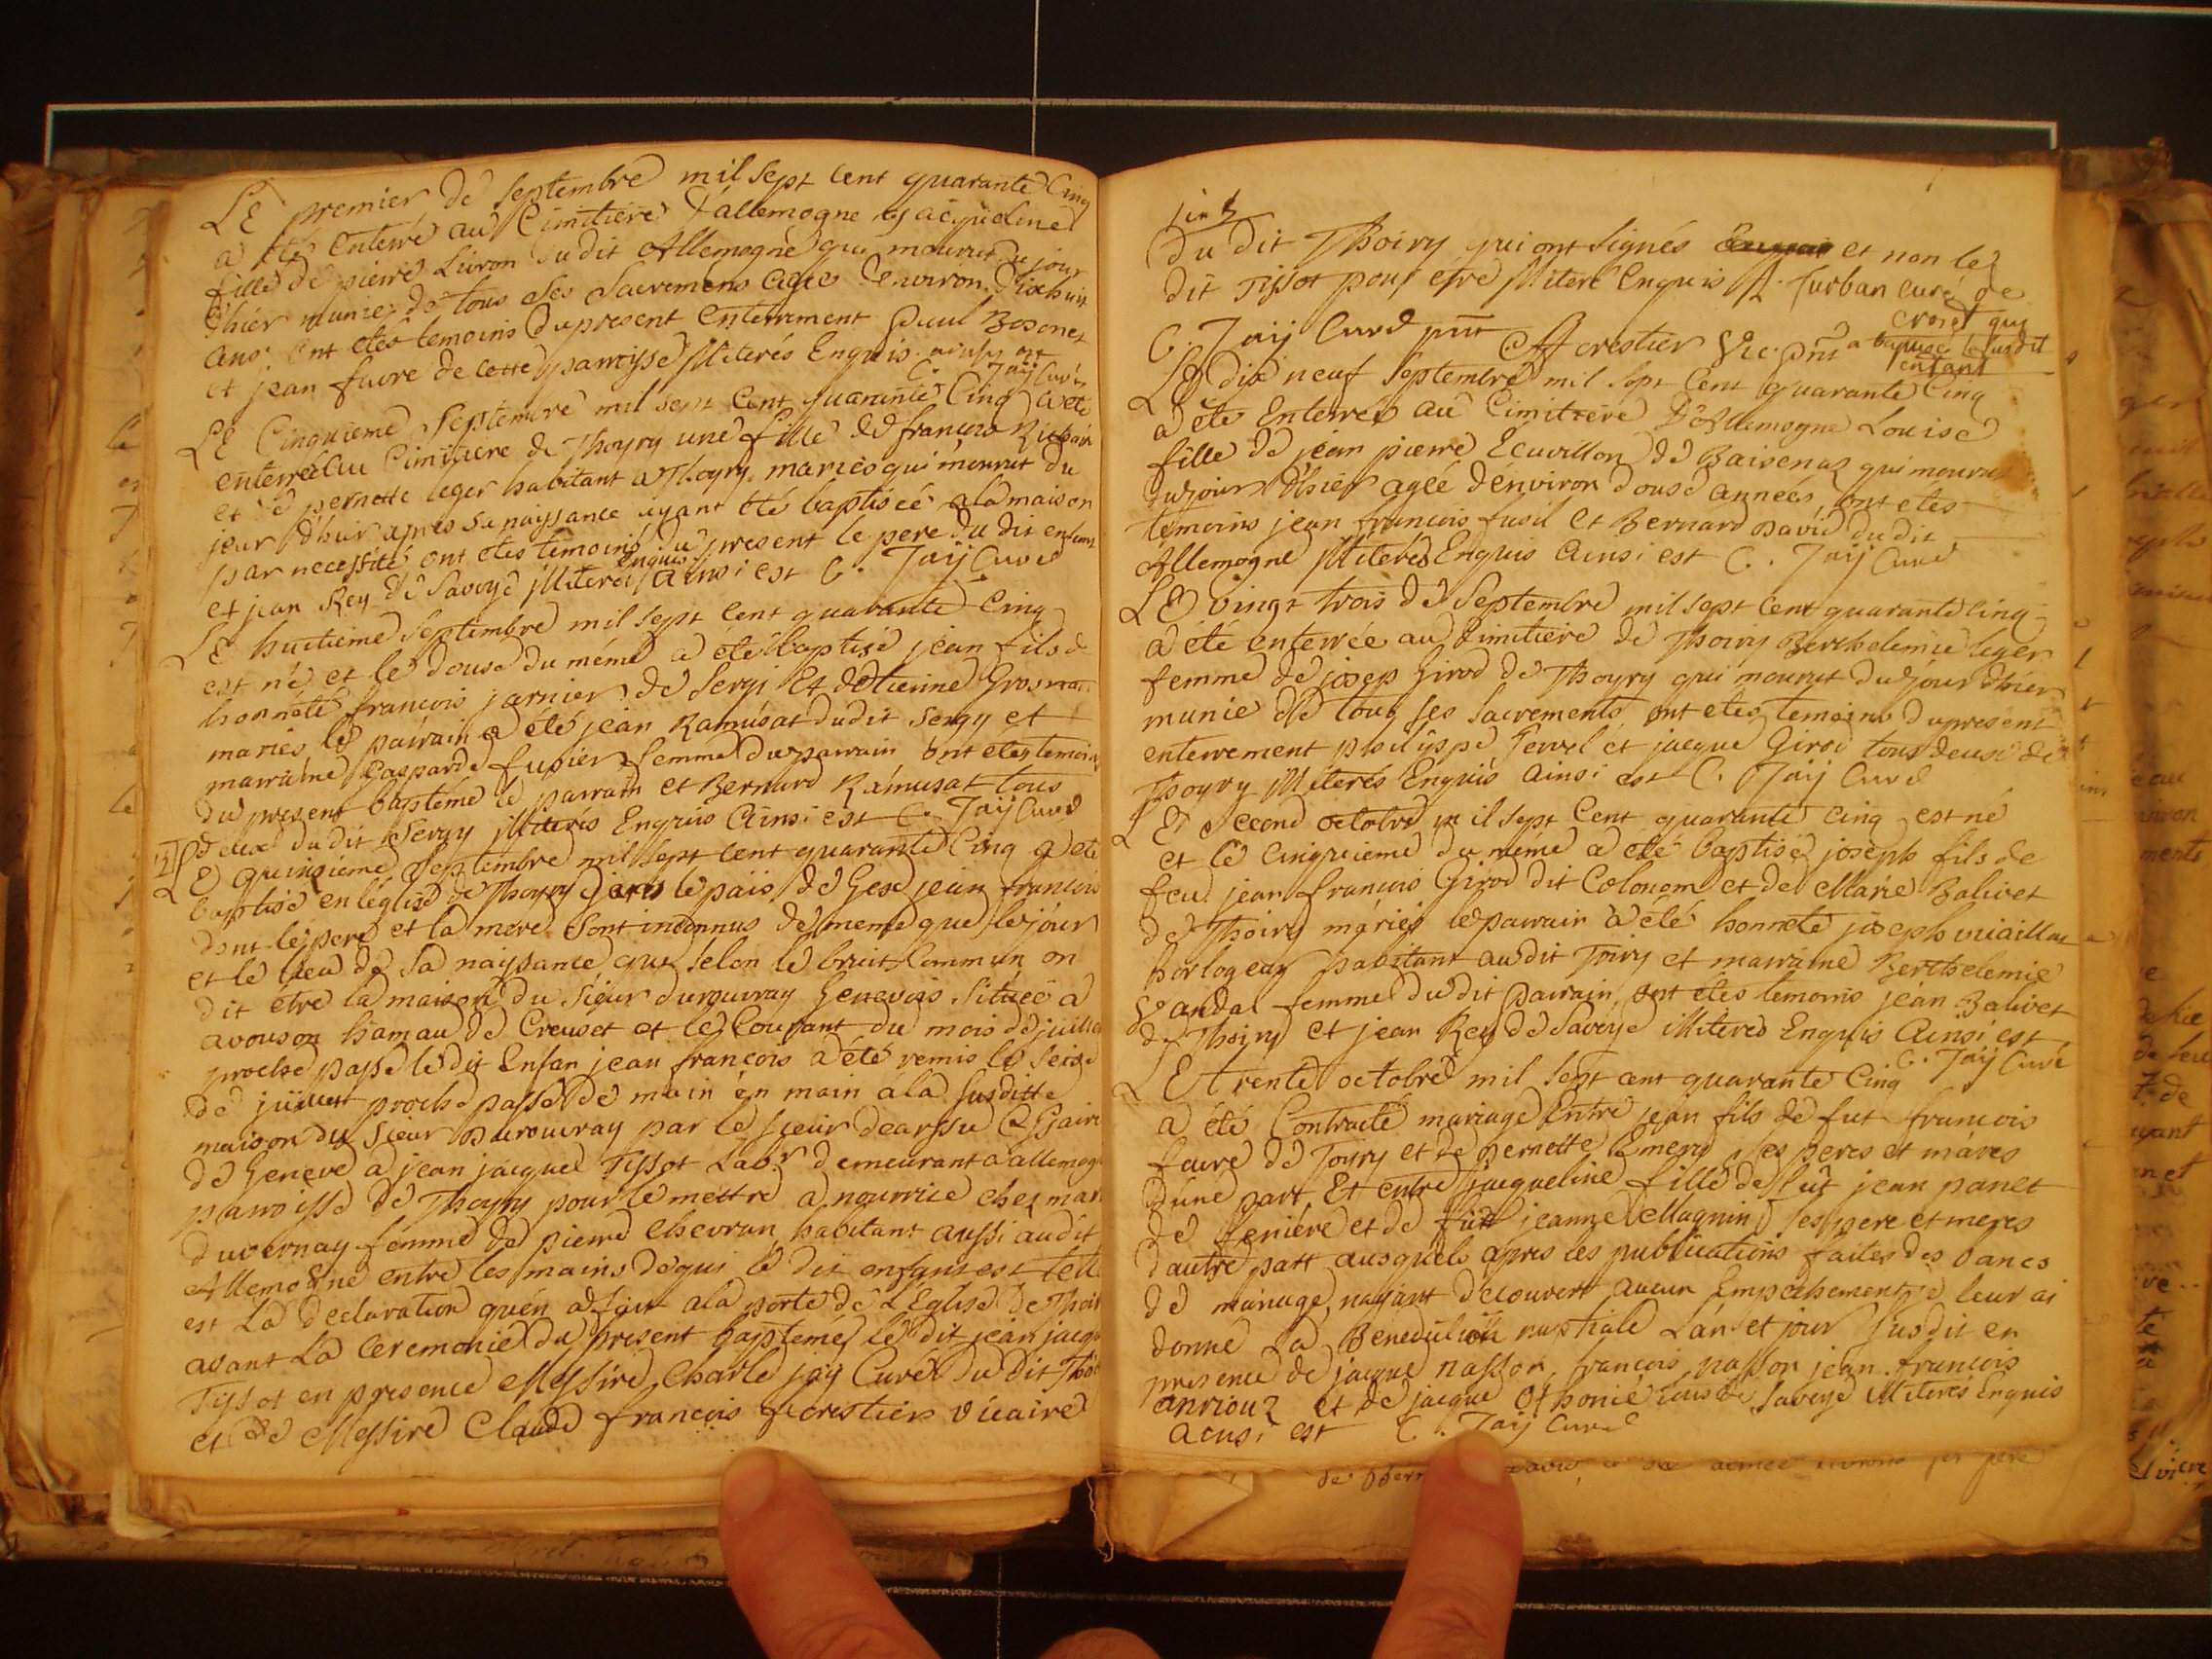 LE premier de Septembre mil sept cent quarante Cinq
a été Enterré au Cimitiere d'allemogne jacqueline
fille de pierre Livron dudit Allemogne qui mourut du jour
d'hier munie de tous ses Sacremens agée d'environ dixhuit
ans. ont etés temoins du present Enterrement Paul Bosonet
et jean favre de cette parroisse illiterés Enquis ainsi est
C. Jaÿ Curé
LE Cinquieme Septembre mil sept Cent quarante Cinq a été
enterrée au Cimitiere de Thoyry une fille de francois
et de pernette leger habitant a Thoyry mariés qui mourut du
jour d'hier apres sa naissance ayant été baptisée a la maison
par necessité ont étés temoins du present le pere du dit enfant
et jean Rey de Savoye illiterés Enquis ainsi est C. Jaÿ Curé
LE huitieme Septembre mil sept cent quarante Cinq
est né et le douse du méme a été baptisé jean fils de
honnéte francois jarnier de Sergi et d'Etienne Grosman
mariés le pairain a été jean Ramusat dudit Sergy et
marraine Gasparde fusier femme du parrain ont etes temoins
du present baptéme le parrain et Bernard Ramusat tous
deux du dit Sergy illiterés Enquis Ainsi est C. Jaÿ Curé
LE quinsieme Septembre mil sept cent quarante Cinq a été
baptisé en l'église de Thoyry dans le païs de Gex jean francois
dont le pere et la mere sont inconnus de meme que le jour
et le lieu de sa naissance que selon le bruit Commun on
dit étre la maison du Sieur durouvray Genevois Située a
avouson hamau de Creuset et le Courant du mois de juillet
proche passé le dit Enfan jean francois a été remis le seise
de juillet proche passé de main en main a la susditte
maison du Sieur Durouvray par le Sieur
de Geneve a jean jacque Tissot Labr demeurant a allemogne
parroisse de Thoyry pour le mettre a nourrice chez
duvernay femme de pierre chevran habitant aussi audit
Allemogne entre les mains de qui le dit enfant est telle
est La declaration qu'en a fait a la porte de L'Eglise de Thoiry
avant La Ceremonie du present baptéme le dit jean jacque
Tissot en presence Messire Charle jaÿ Curé du dit Thoiry
et de Messire Claude francois forestier vicaire
du dit Thoiry qui ont signés et non le
dit Tissot pour etre illiteré Enquis furban curé de
crozet qui
a baptisé le susdit
enfant
C. Jaÿ Curé
forestier Vic.
LE dix neuf Septembre mil sept Cent quarante Cinq
a été Enterrée au Cimitiére D'Allemogne Louise
fille de jean pierre Ecuvillon de Baisenaz qui mourut
du jour d'hier agée d'environ douse années, ont etes
temoins jean francois fusil et Bernard David du dit
Allemogne illiterés Enquis Ainsi est C. Jaÿ Curé
LE vingt trois de Septembre mil sept Cent quarante Cinq
a été enterrée au Cimitiere de Thoiry Berthelemie leger
femme de josep Girod de Thoyry qui mourut du jour d'hier
munie de tous ses Sacrements, ont etes temoins du present
enterrement philippe fervel et jacque Girod tous deux de
Thoyry illiterés Enquis Ainsi est C. Jaÿ Curé
LE second octobre mil sept Cent quarante cinq est né
et le cinquieme du meme a été baptisé joseph fils de
feu jean francois Girod dit Colonom et de Marie Balivet
de Thoiry mariés le parrain a été honnéte joseph
horlogeur habitant audit Toiry et marraine Berthelemie
Vandal femme du dit Parrain, ont étés temoins jean Balivet
de Thoiry et jean Rey de Savoye illiterés Enquis Ainsi est
C. Jaÿ Curé
LE trente octobre mil sept cent quarante Cinq
a été Contracté mariage Entre jean fils de fut francois
favre de Toiry et de Pernette Emery ses peres et méres
d'une part, Et entre jacqueline fille de fût jean panet
de feniére et de fût jeanne Magnin ses pere et meres
d'autre part ausquels apres les publications faites des bancs
de mariage nayant decouvert aucun Empechement je leur ai
donné La Benediction nuptiale L'an et jour susdit en
presence de jacque nasson, francois nasson jean francois
anrioux et de jacque Othonié tous de Savoye illiterés Enquis
Ainsi est C. Jaÿ Curé